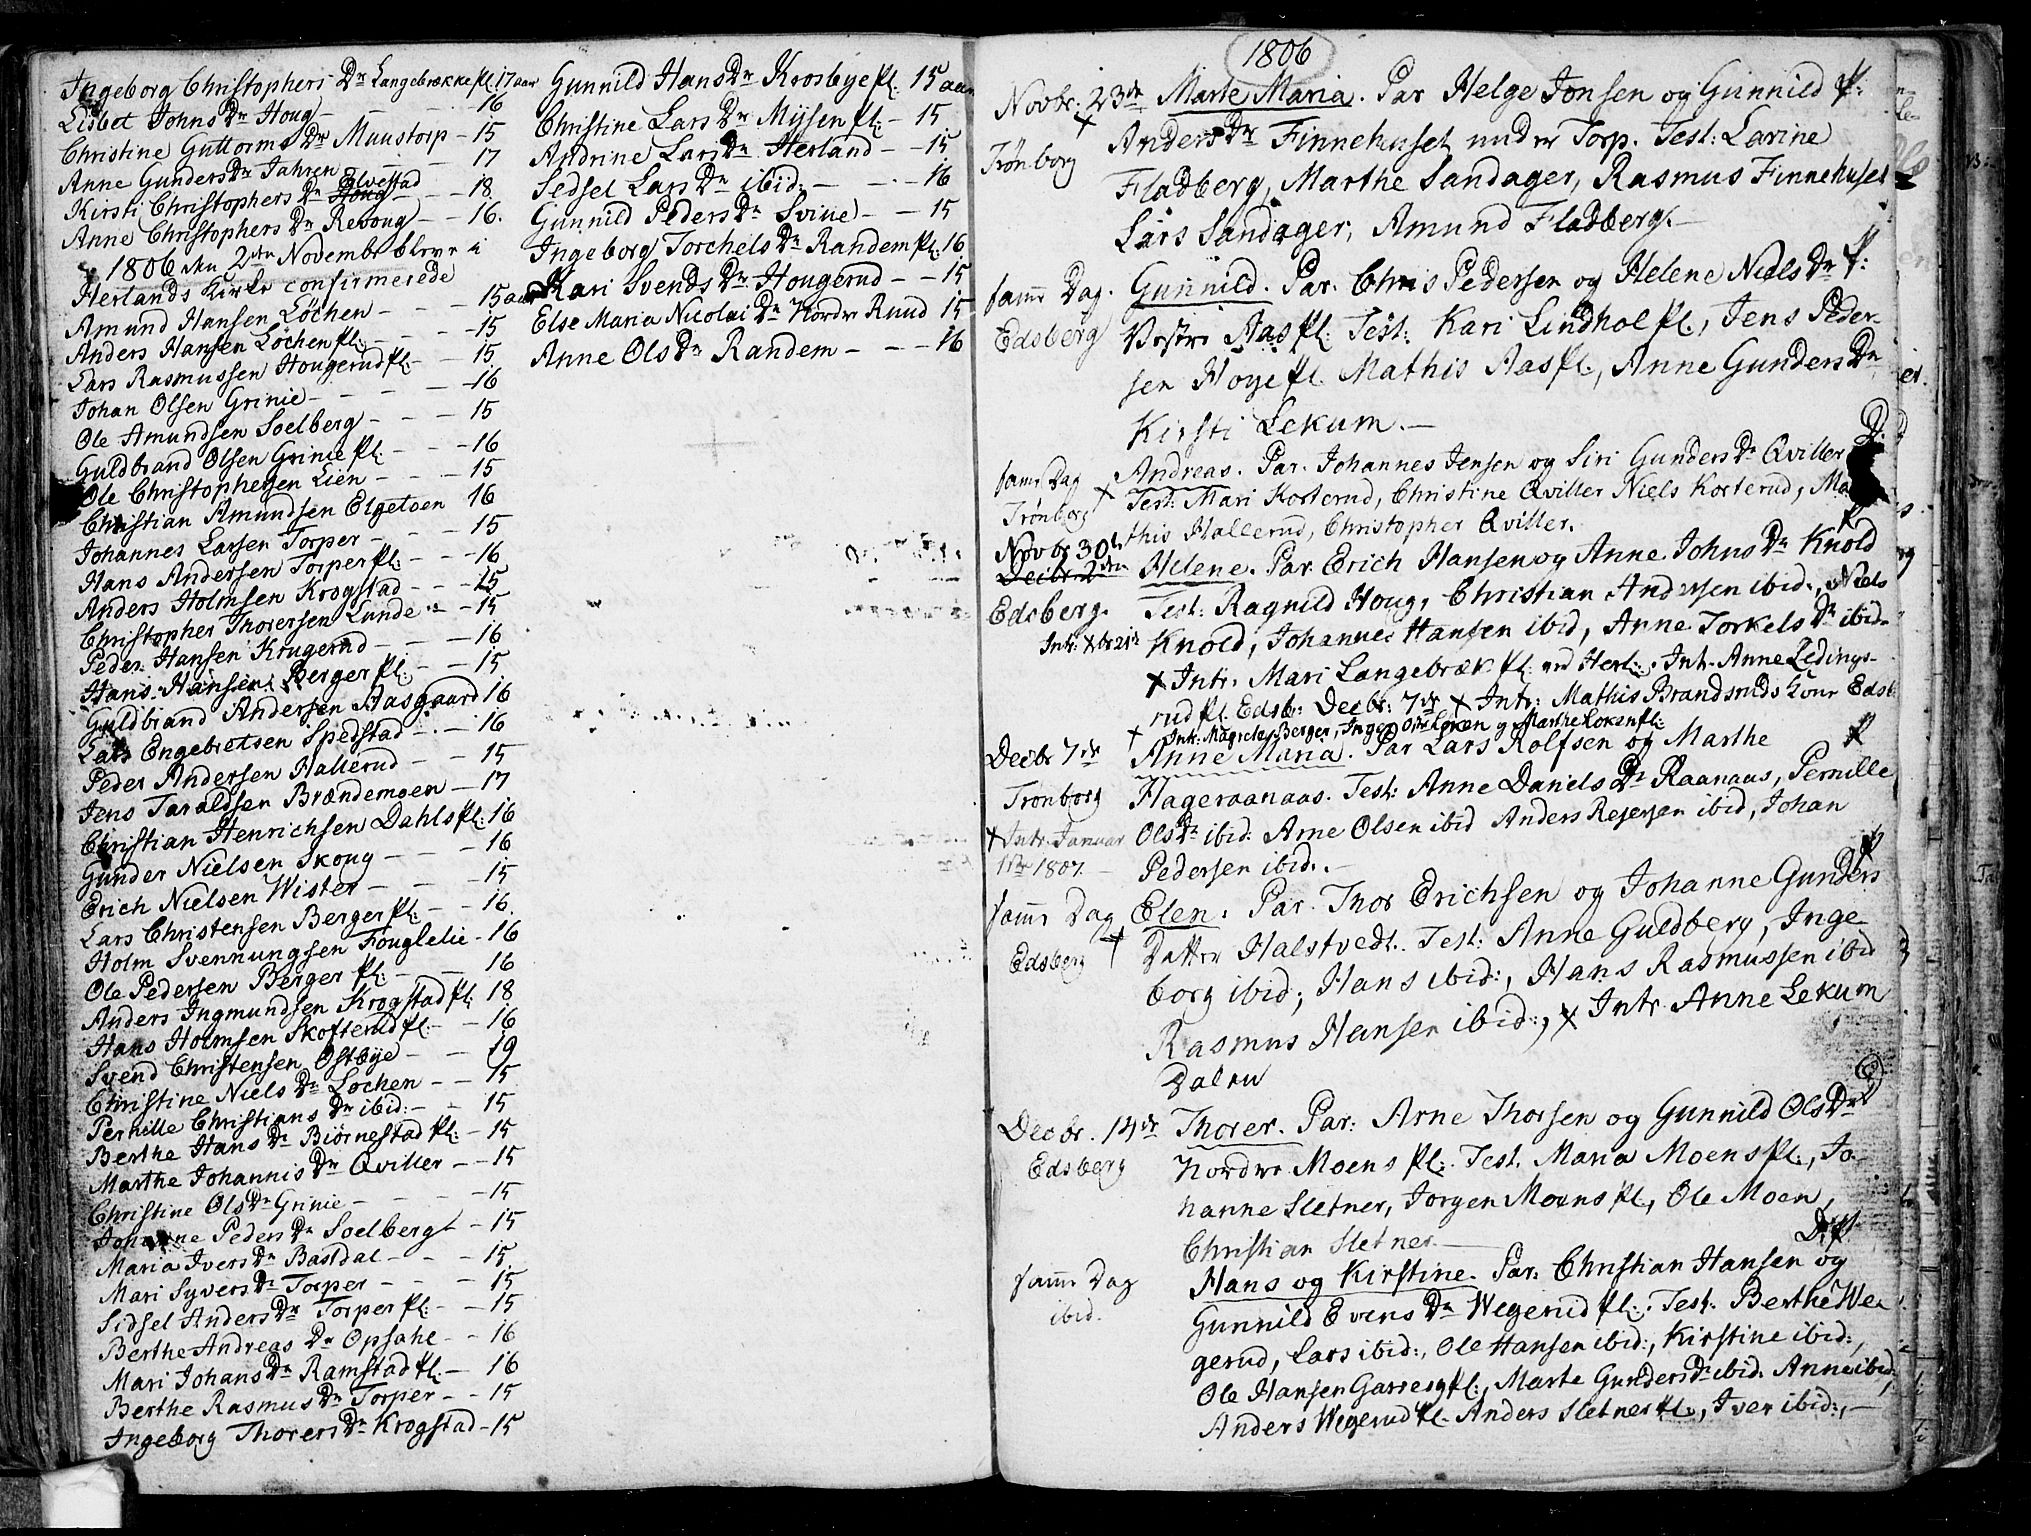 Ingeborg Christophers Dr Langebrække pl. 17 aar
Lisbet Johns Dr Houg - 16
Christine Guttorms Dr Muustorp - 15
Anne Gunders Dr Jahren - 17
Kirsti Christophers Dr Houg Elvestad - 18
Anne Christophers Dr Revoug - 16.
1806 den 2den November blever i
Herlands Kirke confirmerede
Amund Hansen Löchen - 15 aar
Anders Hansen Löchen pl: - 15
Lars Rasmussen Hougerud pl: - 15
Johan Olsen Grinie - 16
Ole Amundsen Soelberg - 15
Guldbrand Olsen Grinie pl: - 16
Ole Christophersen Lien - 15
Christian Amundsen Elgetoen 16
Johannes Larsen Torper - 15
Hans Andersen Torper pl: - 16
Anders Holmsen Krogstad - 15
Christopher Thorersen Lunde - 15
Peder Hansen Krugerud - 16
Hans Hansen Berger pl: - 15
Guldbrand Andersen Aasgaard 16
Lars Engebretsen Spedstad - 16
Peder Andersen Hallerud - 15
Jens Taraldsen Brændemoen - 17
Christian Henrichsen Dahls pl: 16
Gunder Nielsen Skoug - 16
Erich Nielsen Wister - 15
Lars Christensen Berger pl: - 16.
Holm Svennungsen Fouglelie - 16
Ole Pedersen Berger pl: - 16
Anders Ingmundsen Krogstad pl: 18
Hans Holmsen Skofterud pl: - 16
Svend Christensen Ostbye - 19
Christine Niels Dr Löchen - 15
Pernille Christians Dr ibid: - 15
Berthe Hans Dr Biörnestad pl: - 15
Marthe Johannis Dr Qviller - 15
Christine Ols Dr Grinie - 15
Johanne Peders Dr Soelberg - 15
Maria Ivers Dr Bastdal - 15
Mari Syvers Dr Torper - 15
Sidsel Anders Dr Torper pl: - 15
Berthe Andreas Dr Opsahl - 16
Mari Johans Dr Ramstad pl. - 16
Berthe Rasmus Dr Torper - 15
Ingeborg Thorers Dr Krogstad - 15
Gunnild Hans Dr Krosbye pl: 15 aar
Christine Lars Dr Mysen pl: - 15
Andrine Lars Dr Herland - 15
Sedsel Lars Dr ibid: - 16
Gunnild Peders Dr Svine - 15
Ingeborg Torchels Dr Randem pl. 16
Kari Svends Dr Hougerud - 15
Else Maria Nicolai Dr Nordre Ruud 15
Anne Ols Dr Randem - 16
1806
Novbr. 23de Marte Maria. Par Helge Jonsen og Gunnild
Trönborg Anders Dr Finnehuset under Torp. Test: Larine
Fladberg, Marthe Sandager, Rasmus Finnehuset
Lars Sandager, Amund Fladberg.
samme Dag. Gunnild. Par. Chris Pedersen og Helene Niels Dr
Edsberg Vestre Aas pl: Test: Kari Lindhol pl., Jens Peder-
sen Hoye pl. Mathis Aas pl., Anne Gunders Dr
Kirsti Lekum.
samme Dag Andreas. Par. Johannes Jensen og Siri Gunders Dr Qviller
Trönborg Test: Mari Kosterud, Christine Qviller Niels Kosterud, Ma-
this Hallerud, Christopher Qviller.
Novbr 30te
Decbr 2den Helene. Par. Erich Hansen og Anne Johns Dr Knold
Edsberg. Test: Ragnild Houg, Christian Andersen ibid:, Niels
Intr. Xbr 21de Knold, Johannes Hansen ibid, Anne Torkels Dr ibid.
Intr. Mari Langebræk pl. ved Herl:. Intr. Anne Ledings-
rud pl. Edsb: Decbr: 7de Intr: Mathis Brandsruds Kone Edsb.
Intr: Magrete Berger, Inger Loken og Marthe Loken pl:
Decbr 7de Anne Maria. Par Lars Rolfsen og Marthe
Trönborg Hageraanaas. Test: Anne Daniels Dr Raanaas, Pernille
Intr. Januar Ols Dr ibid: Arne Olsen ibid Anders Rejersen ibid, Johan
1ste 1807. Pedersen ibid.
samme Dag Elen. Par. Thor Erichsen og Johanne Gunders
Edsberg Datter Halstvedt. Test: Anne Guldberg, Inge-
borg ibid, Hans ibid:, Hans Rasmussen ibid
Rasmus Hansen ibid:, Intr. Anne Lekum
Dalen
Decbr. 14de Thorer. Par: Arne Thorsen og Gunnild Ols Dr
Edsberg Nordre Moens pl:. Test. Maria Moens pl., Jo-
hanne Sletner, Jorgen Moens pl., Ole Moen,
Christian Sletner.
samme Dag Hans og Kirstine. Par: Christian Hansen og
ibid. Gunnild Evens Dr Wegerud pl:. Test: Berthe We-
gerud, Lars ibid:, Ole Hansen ibid:, Kirstine ibid:,
Ole Hansen Garreeg pl:, Marte Gunders Dr ibid: Anne ibid,
Anders Wegerud pl. Anders Sletner pl., Iver ibid:,